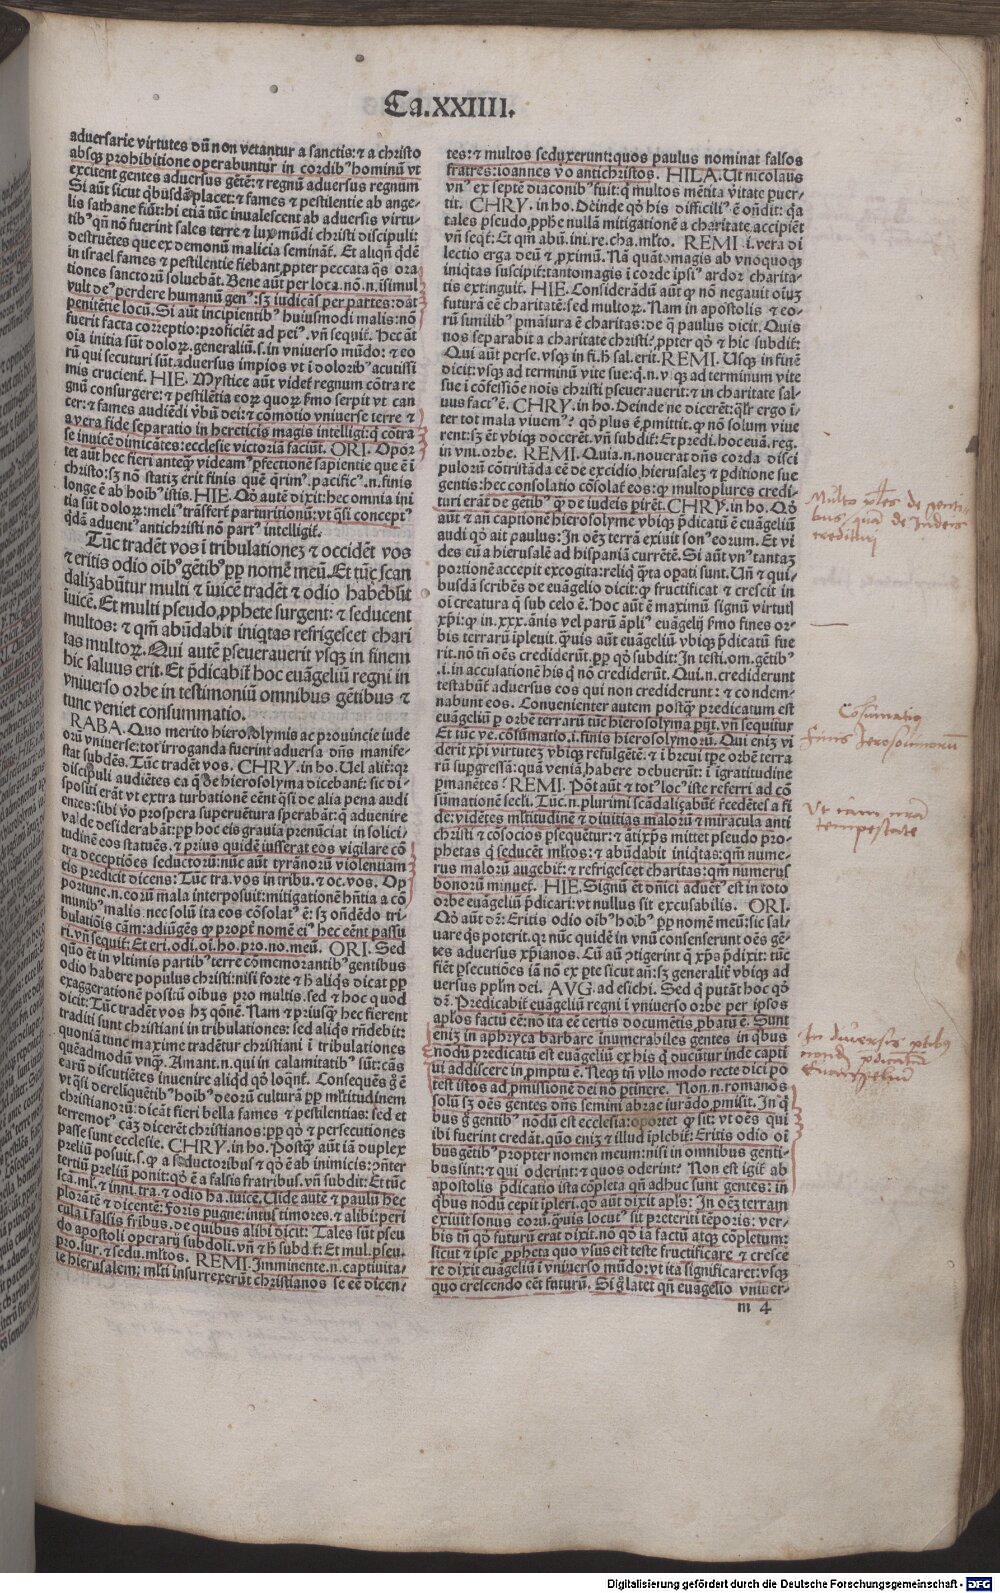 Ca.XXIIII.
adversarie virtutes dū non vetantur a sanctis: ⁊ a christo
absqꝫ prohibitione operabuntur in cordibꝰ hominū vt
excitent gentes adversus gētē: ⁊ regnū adversus regnum
Si aūt sicut qbusdā placet: ⁊ fames ⁊ pestilentie ab ange-
lis sathane fiūt: hi etiā tūc invalescent ab adversis virtu-
tibꝰ qn̄ nō fuerint sales terre ⁊ lux mūdi christi discipuli:
destruētes que ex demonū malicia semināt. Et aliqn̄ qdē
in israel fames ⁊ pestilentie fiebant ꝓpter peccata qs ora
tiones sanctorū solvebāt. Bene aūt per loca. nō. n. isimul
vult deꝰ perdere humanū genꝰ: sꝫ iudicās per partes: dat
penitētie locū. Si aūt incipientibꝰ huiusmodi malis: nō
fuerit facta correptio: proficiēt ad peiꝰ. vn̄ sequit̄. Hec āt
oia initia sūt dolorꝫ. generaliū. s. in vniverso mūdo: ⁊ eo
rū qui secuturi sūt adversus impios vt i doloribꝰ acutissi
mis crucient̄. HIE. Mystice aūt videt̄ regnum cōtra re
gnū consurgere: ⁊ pestilētia eorꝫ quorꝫ s̄mo serpit vt can
cer: ⁊ fames audiēdi v̄bū dei: ⁊ cōmotio vniverse terre ⁊
a vera fide separatio in hereticis magis intelligi: q̄ cōtra
se invicē dimicātes: ecclesie victoriā faciūt. ORI. Opor
tet aūt hec fieri anteqꝫ videamꝰ ꝑfectionē sapientie que ē i
christo: sꝫ nō statiꝫ erit finis quē qrimꝰ. pacificꝰ. n. finis
longe ē ab hoibꝰ istis. HIE. Qō autē dixit: hec omnia ini
tia sūt dolorꝫ: meliꝰ trāsfert̄ parturitionū: vt qsi conceptꝰ
qdā aduentꝰ antichristi nō partꝰ intelligit̄.
Tūc tradēt vos i tribulationeꝫ ⁊ occidēt vos
⁊ eritis odio oībꝰ gētibꝰ ꝓp nomē meū. Et tūc scan
daliꝫabūtur multi ⁊ iuicē tradēt ⁊ odio habebūt
iuicē. Et multi pseudo ꝓphete surgent: ⁊ seducent
multos: ⁊ qm̄ abūdabit iniqtas refrigescet chari
tas multorꝫ. Qui autē ꝑseueraverit vsqꝫ in finem
hic saluus erit. Et p̄dicabit̄ hoc euāgeliū regni in
vniverso orbe in testimoniū omnibus gētibus ⁊
tunc veniet consummatio.
RABA. Quo merito hierosolymis ac provincie iude
orū vniverse: tot irroganda fuerint aduersa dn̄s manife-
stat subdēs. Tūc tradēt vos. CHRY. in ho. Uel alit̄: qr
discipuli audiētes ea q̄ de hierosolyma dicebant̄: sic di-
spositi erāt vt extra turbationē eēnt qsi de alia pena audi
entes: sibi v̄o prospera superuētura sperabāt: q̄ aduenire
valde desiderabāt: ꝓp hoc eis grauia prenūciat in solici/
tudinē eos statuēs. ⁊ prius quidē iusserat eos vigilare cō
tra deceptiōes seductorū: nūc aūt tyrānorū violentiam
eis predicit dicens: Tūc tra. vos in tribu. ⁊ oc. vos. Op
portune. n. eorū mala interposuit: mitigationē hn̄tia a cō
munibꝰ malis. nec solū ita eos cōsolatꝰ ē: sꝫ on̄dēdo tri-
bulatiōis cām: adiūgēs qꝫ propt̄ nomē eiꝰ hec eēnt passu
ri. vn̄ sequit̄: Et eri. odi. oi. ho. pro. no. meū. ORI. Sed
quō ēt in vltimis partibꝰ terre cōmemorantibꝰ gentibus
odio habere populus christi: nisi forte ⁊ h̄ aliqs dicat ꝓp
exaggerationē positū oibus pro multis. sed ⁊ hoc quod
dicit: Tūc tradēt vos hꝫ qōnē. Nam ⁊ priusqꝫ hec fierent
traditi sunt christiani in tribulationes: sed aliqs rn̄debit:
quoniā tunc maxime tradētur christiani i tribulationes
quēadmodū vnqꝫ. Amant. n. qui in calamitatibꝰ sūt: cās
earū discutiētes inuenire aliqd qō loqnt̄. Consequēs g̊ ē
vt qsi dereliquētibꝰ hoibꝰ deorū culturā ꝓp ml̄titudinem
christianorū: dicāt fieri bella fames ⁊ pestilentias: sed et
terremotꝰ cāꝫ dicerēt christianos: ꝓp qō ⁊ persecutiones
passe sunt ecclesie. CHRY. in ho. Postqꝫ aūt iā duplex
preliū posuit. s. qꝫ a seductoribus ⁊ qō ē ab inimicis: ꝯn̄ter
tertiū preliū ponit: qō ē a falsis fratribus. vn̄ subdit: Et tūc
scā. ml̄. ⁊ inui. tra. ⁊ odio ha. iuice. Uide autē ⁊ paulū hec
plorātē ⁊ dicentē: Foris pugne: intus timores. ⁊ alibi: peri
cula i falsis fribus. de quibus alibi dicit: Tales sūt pseu
do apostoli operarij subdoli. vn̄ ⁊ h̄ subd t̄: Et mul. pseu.
pro. sur. ⁊ sedu. ml̄tos. REMI. Imminente. n. captivita-
te hierusalem: ml̄ti insurrexerūt christianos se eē dicen-
tes: ⁊ multos seduxerunt: quos paulus nominat falsos
fratres: ioannes v̄o antichristos. HILA. Ut nicolaus
vnꝰ ex septē diaconibꝰ fuit: q̄ multos mētita v̄itate ꝑuer-
tit. CHRY. in ho. Deinde qō his difficiliꝰ ē on̄dit: qa
tales pseudo ꝓphe nullā mitigationē a charitate accipiēt
vn̄ seqt̄: Et qm̄ abū. ini. re. cha. ml̄to. REMI. i. vera di
lectio erga deū ⁊ ꝓximū. Nā quātomagis ab vnoquoqꝫ
iniqtas suscipit̄: tantomagis i corde ipsiꝰ ardor charita-
tis extinguit̄. HIE. Considerādū aūt qꝫ nō negauit oiuꝫ
futurā eē charitatē: sed multorꝫ. Nam in apostolis ⁊ eo-
rū similibꝰ ꝑmāsura ē charitas: de q̄ paulus dicit. Quis
nos separabit a charitate christi? ꝓpter qō ⁊ hic subdit̄:
Qui aūt perse. vsqꝫ in fi. h̄ sal. erit. REMI. Usqꝫ in finē
dicit: vsqꝫ ad terminū vite sue: q. n. vsqꝫ ad terminum vite
sue i cōfessiōe nois christi ꝑseuerauerit: ⁊ in charitate sal-
uus factꝰ ē. CHRY. in ho. Deinde ne dicerēt: ql̄r ergo i-
ter tot mala viuemꝰ? qō plus ē ꝓmittit. qꝫ nō solum viue
rent: sꝫ ēt vbiqꝫ docerēt. vn̄ subdit̄: Et predi. hoc euā. reg.
in vni. orbe. REMI. Quia. n. nouerat dn̄s corda disci
pulorū cōtristāda eē de excidio hierusaleꝫ ⁊ ꝑditione sue
gentis: hec consolatio cōsolat̄ eos: qꝫ multoplures credi-
turi erāt de gētibꝰ qꝫ de iudeis ꝑirēt. CHRY. in ho. Qō
aūt ⁊ an̄ captionē hierosolyme vbiqꝫ p̄dicatū ē euāgeliū
audi qō ait paulus: In oēꝫ terrā exiuit sonꝰ eorum. Et vi
des eū a hierusalē ad hispaniā currētē. Si aūt vnꝰ tantaꝫ
portionē accepit excogita: reliq q̄ta opati sunt. Un̄ ⁊ qui-
busdā scribēs de euāgelio dicit: qꝫ fructificat ⁊ crescit in
oi creatura q̄ sub celo ē. Hoc aūt ē maximū signū virtutū
xp̄i: qꝫ in. xxx. ānis vel parū āpliꝰ euāgelij s̄mo fines or-
bis terrarū ipleuit. q̄uis aūt euāgeliū vbiqꝫ p̄dicatū fue
rit. nō tn̄ oēs crediderūt. ꝓp qō subdit: In testi. om. gētibꝰ
.i. in accusationē his q̄ nō crediderūt. Qui. n. crediderunt
testabūt̄ adversus eos qui non crediderunt: ⁊ condem-
nabunt eos. Convenienter autem postqꝫ predicatum est
euāgeliū ꝑ orbē terrarū tūc hierosolyma ꝑijt. vn̄ sequitur
Et tūc ve. cōsūmatio. i. finis hierosolymorū. Qui eniꝫ vi
derit xp̄i virtuteꝫ vbiqꝫ refulgētē: ⁊ i breui tp̄e orbē terra
rū suꝑgressā: quā veniā habere debuerūt: i īgratitudine
ꝑmanētes? REMI. Pōt aūt ⁊ totꝰ locꝰ iste referri ad cō
sūmationē secli. Tūc. n. plurimi scādaliꝫabūt̄ r̄cedētes a fi
de: vidētes ml̄titudinē ⁊ diuitias malorū ⁊ miracula anti
christi ⁊ cōsocios ꝑsequētur: ⁊ ātixp̄s mittet pseudo pro-
phetas q̄ seducēt ml̄tos: ⁊ abūdabit iniqtas: qm̄ nume-
rus malorū augebit̄: ⁊ refrigescet charitas: qm̄ numerus
bonorū minuet̄. HIE. Signū ēt dn̄ici aduētꝰ est in toto
orbe euāgeliū p̄dicari: vt nullus sit excusabilis. ORI.
Qō aūt dr̄: Eritis odio oibꝰ hoibꝰ ꝓp nomē meū: sic sal-
uare qs poterit. qr nūc quidē in vnū consenserunt oēs gē-
tes adversus xp̄ianos. Cū aūt ꝯtigerint q̄ xp̄s p̄dixit: tūc
fiēt ꝑsecutiōes iā nō ex ꝑte sicut an̄: sꝫ generalit̄ vbiqꝫ ad
uersus ppl̄m dei. AVG. ad esichi. Sed q̄ putāt hoc qō
dr̄. Predicabit̄ euāgeliū regni i vniverso orbe per ipsos
apl̄os factū eē: nō ita eē certis documētis ꝓbatū ē. Sunt
eniꝫ in aphryca barbare inumerabiles gentes in qbus
nōdū predicatū est euāgeliū ex his q̄ ducūtur inde capti
ui addiscere in ꝓmptu ē. Neqꝫ tn̄ vllo modo recte dici po
test istos ad ꝓmissionē dei nō ꝑtinere. Non. n. romanos
solū sꝫ oēs gentes dn̄s semini abrae iurādo ꝓmisit. In q̄
bus g̊ gentibꝰ nōdū est ecclesia: oportet qꝫ sit: vt oēs qui
ibi fuerint credāt. quō eniꝫ ⁊ illud iplebit̄: Eritis odio oi
bus gētibꝰ propter nomen meum: nisi in omnibus genti-
bus sint: ⁊ qui oderint: ⁊ quos oderint? Non est igit̄ ab
apostolis p̄dicatio ista cōpleta qn̄ adhuc sunt gentes: in
qbus nōdū cepit ipleri. qō aūt dixit apl̄s: In oēꝫ terram
exiuit sonus eorū. q̄uis locutꝰ sit preteriti tēporis: ver-
bis tn̄ qō futurū erat dixit. nō qō iā factū atqꝫ cōpletum:
sicut ⁊ ipse ꝓpheta quo vsus est teste fructificare ⁊ cresce
re dixit euāgeliū i vniuerso mūdo: vt ita significaret: vsqꝫ
quo crescendo eēt futurū. Si g̊ latet qn̄ euagelio vniuer-
m 4
de genti-
bus, quā de Iudeis
Consūmatio
finis Ierosolimorum
tempestate
In diuersis
nondū p̄dicatum
Euangelium
Digitalisierung gefördert durch die Deutsche Forschungsgemeinschaft - DFG